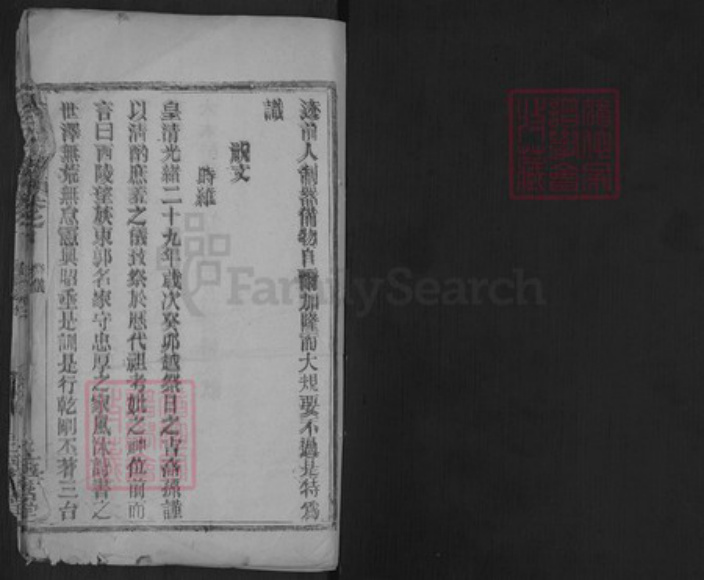 遠前人制祭備物自爾加隆而大規要不過是特爲
識
祝文
時維
皇清光緒二十九年歲次癸卯越祭日之吉裔孫謹
以清酌庶羞之儀致祭於歷代祖考妣之神位前而
言曰西陵望族東郭名家守忠厚之家風沐詩書之
世澤無怠無息靈興昭垂是訓是行乾剛不著三台
FamilySearch